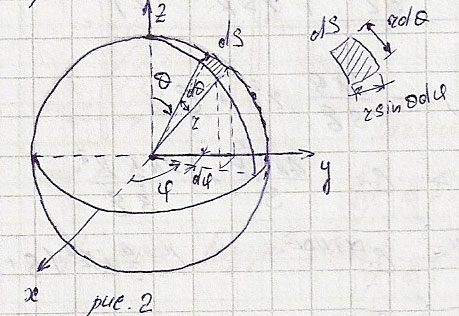 z
dS
θ
dθ
r
φ
dφ
y
x
dS
rdθ
r sinθdφ
рис. 2